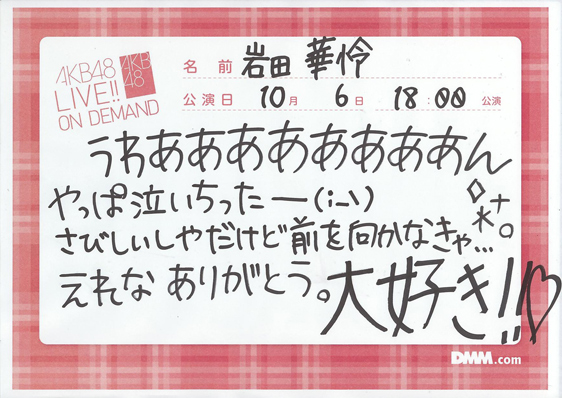 AKB48
LIVE!!
ON DEMAND
AKB
48
名前 岩田 華怜
公演日 10月 6日 18:00 公演
うわあああああああああん
やっぱ泣いちったー(;_;)
さびしいしやだけど前を向かなきゃ…
えれな ありがとう。大好き!!♡
DMM.com